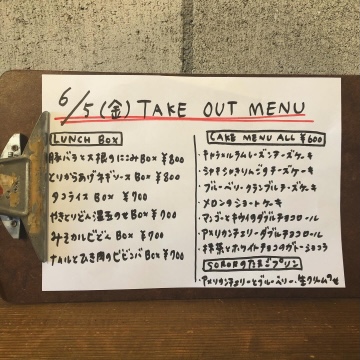 6/5(金) TAKE OUT MENU
LUNCH BOX
豚バラと大根のにこみBOX ¥800
とりからあげネギソースBOX ¥800
タコライスBOX ¥700
やきとりどん温玉のせBOX ¥700
みそカルビどんBOX ¥700
ナムルとひき肉のビビンバBOX ¥700
CAKE MENU ALL ¥600
・キャラメルラムレーズンチーズケーキ
・シャキシャキりんごのチーズケーキ
・ブルーベリークランブルチーズケーキ
・メロンのショートケーキ
・マンゴーとキウイのダブルチョコロール
・アメリカンチェリーダブルチョコロール
・抹茶とホワイトチョコのガトーショコラ
のたまごプリン
・アメリカンチェリーとブルーベリー、生クリームのせ